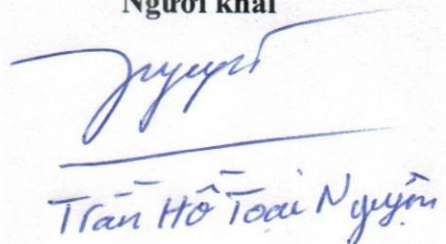 Người khai
Trần Hồ Toại Nguyện